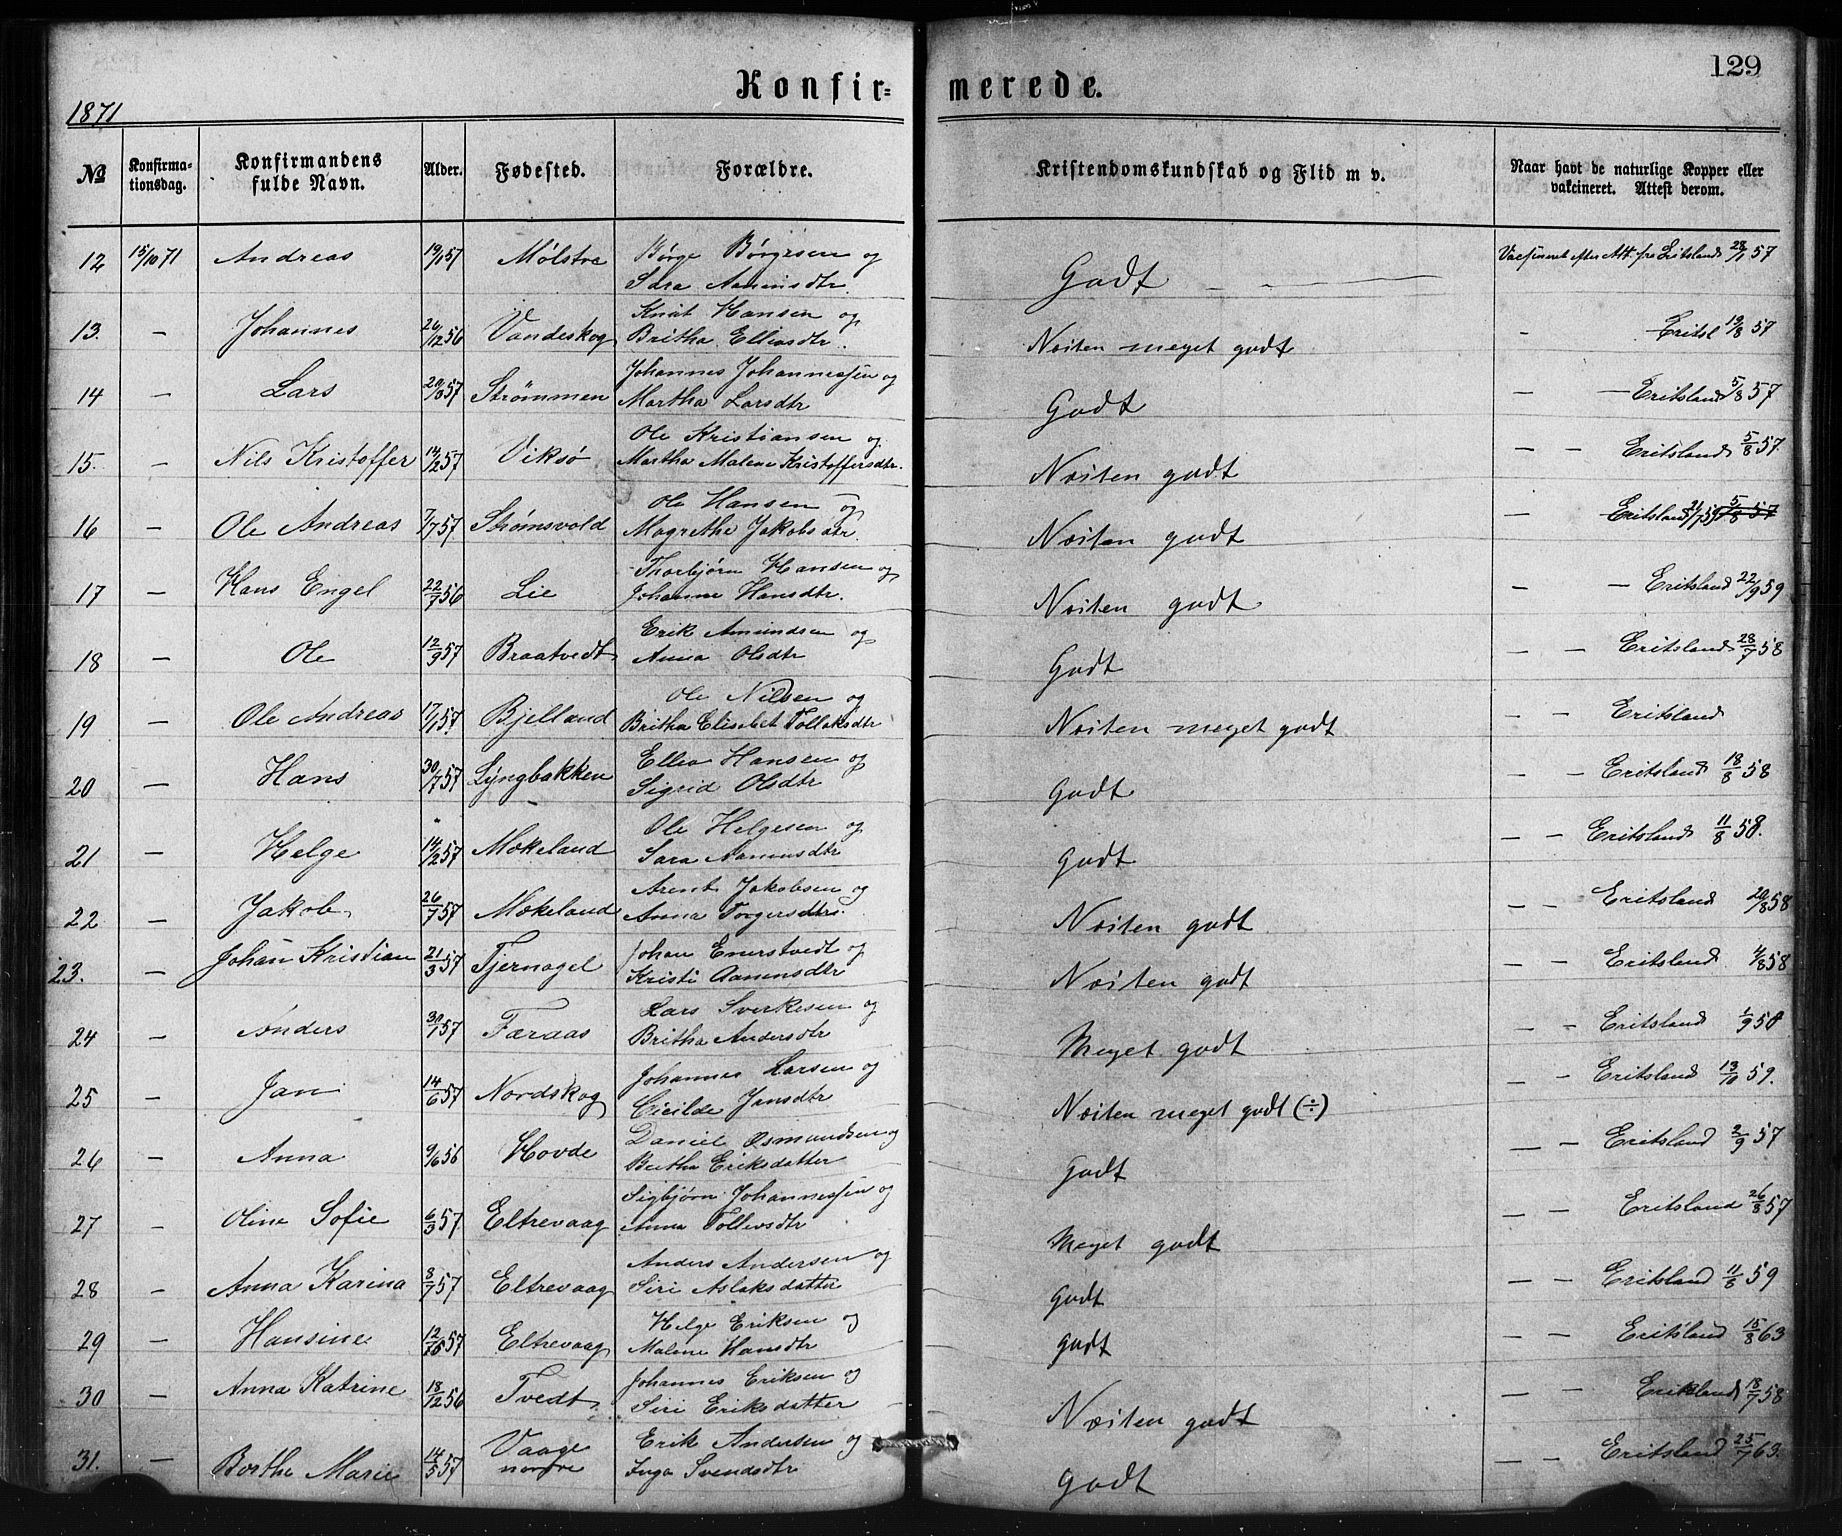 129
Konfir= merede.
1871
No Konfirma-tionsdag. Konfirmandens fulde Navn. Alder. Fødested. Forældre. Kristendomskundskab og Flid m v. Naar havt de naturlige Kopper eller vakcineret. Attest derom.
12 15/10 71 Andreas 19/1 57 Mølstre Børge Børgesen og Vacsineret efter Att. fra Eritsland 28/7 57
Sara Aamundsdtr. Godt
13. — Johannes 26/12 56 Vandeskog Knut Hansen og — Eritsl 19/8 57
Britha Elliasdtr. Næsten meget godt
14 — Lars 20/ 57 Strømmen Johannes Johannessen og — — Eritsland 5/8 57
Martha Larsdtr Godt
15. — Nils Kristoffer 14/2 57 Viksø Ole Kristiansen og — — Eritsland 5/8 57.
Martha Malene Kristoffersdtr. Næsten godt
16 — Ole Andreas 7/7 57 Strømsvold Ole Hansen og — Eritsland 21/7 59 5/8 57
Magrethe Jakobsdtr. Næsten godt
17 — Hans Engel 22/7 56 Lie Thorbjørn Hansen og — — Eritsland 22/9 59
Johanne Hansdtr. Næsten godt
18 — Ole 12/9 57 Braatvedt Erik Amundsen og — — Eritsland 28/7 58
Anna Olsdtr Godt
19 — Ole Andreas 17/1 57 Bjelland Ole Nilsen og — — Eritsland
Britha Elisabet Tollaksdtr Næsten meget godt
20 — Hans 30/7 57 Lyngbakken Ellio Hansen og — — Eritsland 18/8 58
Sigrid Olsdtr Godt
21 — Helge 14/2 57 Mækeland Ole Helgesen og — — Eritsland 11/8 58.
Sara Aamundsdtr Godt
22 — Jakob 26/7 57 Mækeland Arent Jakobsen og — — Eritsland 20/8 58
Anna Torgersdtr. Næsten godt
23. — Johan Kristian 21/3 57 Tjernagel Johan Enerstvedt og — — Eritsland 4/8 58
Kristi Aamundsdtr Næsten godt
24 — Anders 30/1 57 Færaas Lars Sverkesen og — — Eritsland 1/9 58
Britha Andersdtr Meget godt
25 — Jan 14/6 57 Nordskog Johannes Larsen og — — Eritsland 13/10 59.
Cicilde Jansdtr Næsten meget godt (÷)
26 — Anna 9/6 56 Hovde Daniel Osmundsen og — — Eritsland 2/9 57
Beritha Eriksdatter Godt
27 — Oline Sofie 6/3 57 Eltrevaag Sigbjørn Johannessen og — — Eritsland 26/8 57
Anna Tollevsdtr Meget godt
28 — Anna Karina 8/7 57 Eltrevaag Anders Andersen og — — Eritsland 11/8 59
Siri Aslaksdatter Godt
29 — Hansine 12/ 57 Eltrevaag Helge Eriksen og — — Eritsland 15/8 63
Malene Hansdtr Godt
30 — Anna Katrine 18/12 56 Tvedt Johannes Eriksen og — — Eritsland 18/7 58
Siri Eriksdatter Næsten godt
31. — Bertha Marie 14/5 57 Vaage Erik Andersen og — — Eritsland 25/7 63.
nordre Inga Svendsdtr Godt